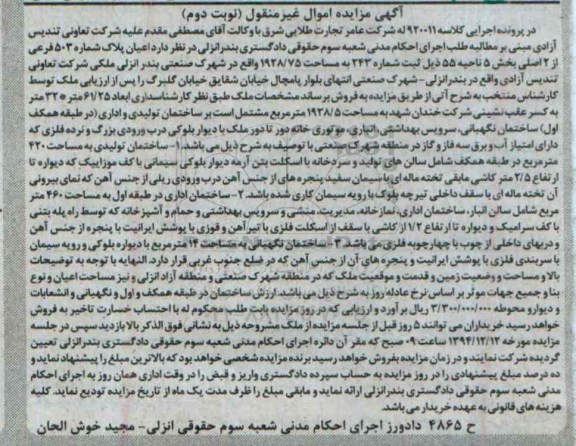 آگهی مزایده اموال غیرمنقول (نوبت دوم)
در پرونده اجرایی کلاسه ۹۲۰۰۱۱ له شرکت عامر تجارت طلایی شرق با وکالت آقای مصطفی مقدم علیه شرکت تعاونی تندیس
آزادی مبنی بر مطالبه طلب اجرای احکام مدنی شعبه سوم حقوقی دادگستری بندرانزلی در نظر دارد اعیان پلاک شماره ۵۰۳ فرعی
از ۲ اصلی بخش ۵ ناحیه ۵۵ ذیل ثبت شماره ۲۴۳ به مساحت ۱۹۲۸/۷۵ واقع در شهرک صنعتی بندر انزلی ملکی شرکت تعاونی
تندیس آزادی واقع در بندرانزلی- شهرک صنعتی انتهای بلوار پامچال خیابان شقایق خیابان گلبرگ را پس از ارزیابی ملک توسط
کارشناس منتخب به شرح آتی از طریق مزایده به فروش برساند مشخصات ملک طبق نظر کارشناسداری ابعاد ۶۱/۲۵ متر * ۳۲ متر
به کسر عقب نشینی شرکت خندان شهد به مساحت ۱۹۳۸/۵ مترمربع مشتمل است بر ساختمان تولیدی و اداری (در طبقه همکف
اول) ساختمان نگهبانی، سرویس بهداشتی، انباری، موتوری خانه دور تا دور ملک با دیوار بلوکی درب ورودی بزرگ و نرده فلزی که
دارای امتیاز آب و برق سه فاز و گاز در منطقه شهرک صنعتی با توصیف به شرح ذیل می باشد. ۱- ساختمان تولیدی به مساحت ۴۲۰
مترمربع در طبقه همکف شامل سالن های تولید و سردخانه با اسکلت بتن آرمه دیوار بلوکی سیمانی با کف موزاییک که دیواره تا
ارتفاع ۲/۵ متر کاشی مابقی تخته ماله ای با سیمان سفید پنجره های از جنس آهن درب ورودی ریلی از جنس آهن که نمای بیرونی
آن تخته ماله ای با سقف داخلی تیرچه بلوک با رویه سیمان کاری شده باشد. ۲- ساختمان اداری در طبقه اول به مساحت ۴۶۰ متر
مربع شامل سالن انبار، ساختمان اداری، نمازخانه، مدیریت، منشی و سرویس بهداشتی و حمام و آشپزخانه که توسط راه پله بتنی
با کف سرامیک و دیواره تا ارتفاع ۱/۲ از کاشی با سقف از اسکلت فلزی با تیرآهن و قوزی با پوشش ایرانیت با پنجره از جنس آهن
و دربهای داخلی از چوب با چهارچوبه فلزی می باشد. ۳- ساختمان نگهبانی به مساحت ۱۴ مترمربع با دیواره بلوکی و رویه سیمان
با سربندی فلزی با پوشش ایرانیت و پنجره های آن از جنس آهن که در ضلع جنوب غربی قرار دارد. النهایه با توجه به توضیحات
بالا و مساحت و وضعیت زمین و قدمت و موقعیت ملک که در منطقه شهرک صنعتی و منطقه آزاد انزلی و نیز مساحت اعیان و نوع
بنا و جمیع جهات موثر بر اساس نرخ عادله روز به شرح ذیل می باشد. ارزش ساختمان در طبقه همکف و اول و نگهبانی و انشعابات
و دیوار و محوطه ۳/۳۰۰/۰۰۰/۰۰۰ ریال برآورد و ارزیابی که در روز مزایده بابت طلب محکوم له با احتساب خسارت تاخیر به فروش
خواهد رسید خریداران می توانند ۵ روز قبل از جلسه مزایده از ملک مشروحه ذیل به نشانی فوق الذکر بالا بازدید سپس در جلسه
مزایده مورخه ۱۳۹۴/۱۲/۱۲ ساعت ۰۹ صبح که مقر آن دائره اجرای احکام مدنی شعبه سوم حقوقی دادگستری بندرانزلی تعیین
گردیده شرکت نمایند و در زمان مزایده بفروش خواهد رسید برنده مزایده شخصی خواهد بود که بالاترین مبلغ را پیشنهاد نماید و
ده درصد مبلغ پیشنهادی را در روز مزایده به حساب سپرده دادگستری واریز و قبض را در وقت اداری همان روز به اجرای احکام
مدنی شعبه سوم حقوقی دادگستری بندرانزلی ارائه نماید و مابقی مبلغ را ظرف مدت یک ماه از تاریخ مزایده تودیع نماید. کلیه
هزینه های قانونی به عهده خریدار می باشد.
ح ۴۸۶۵ دادورز اجرای احکام مدنی شعبه سوم حقوقی انزلی- مجید خوش الحان